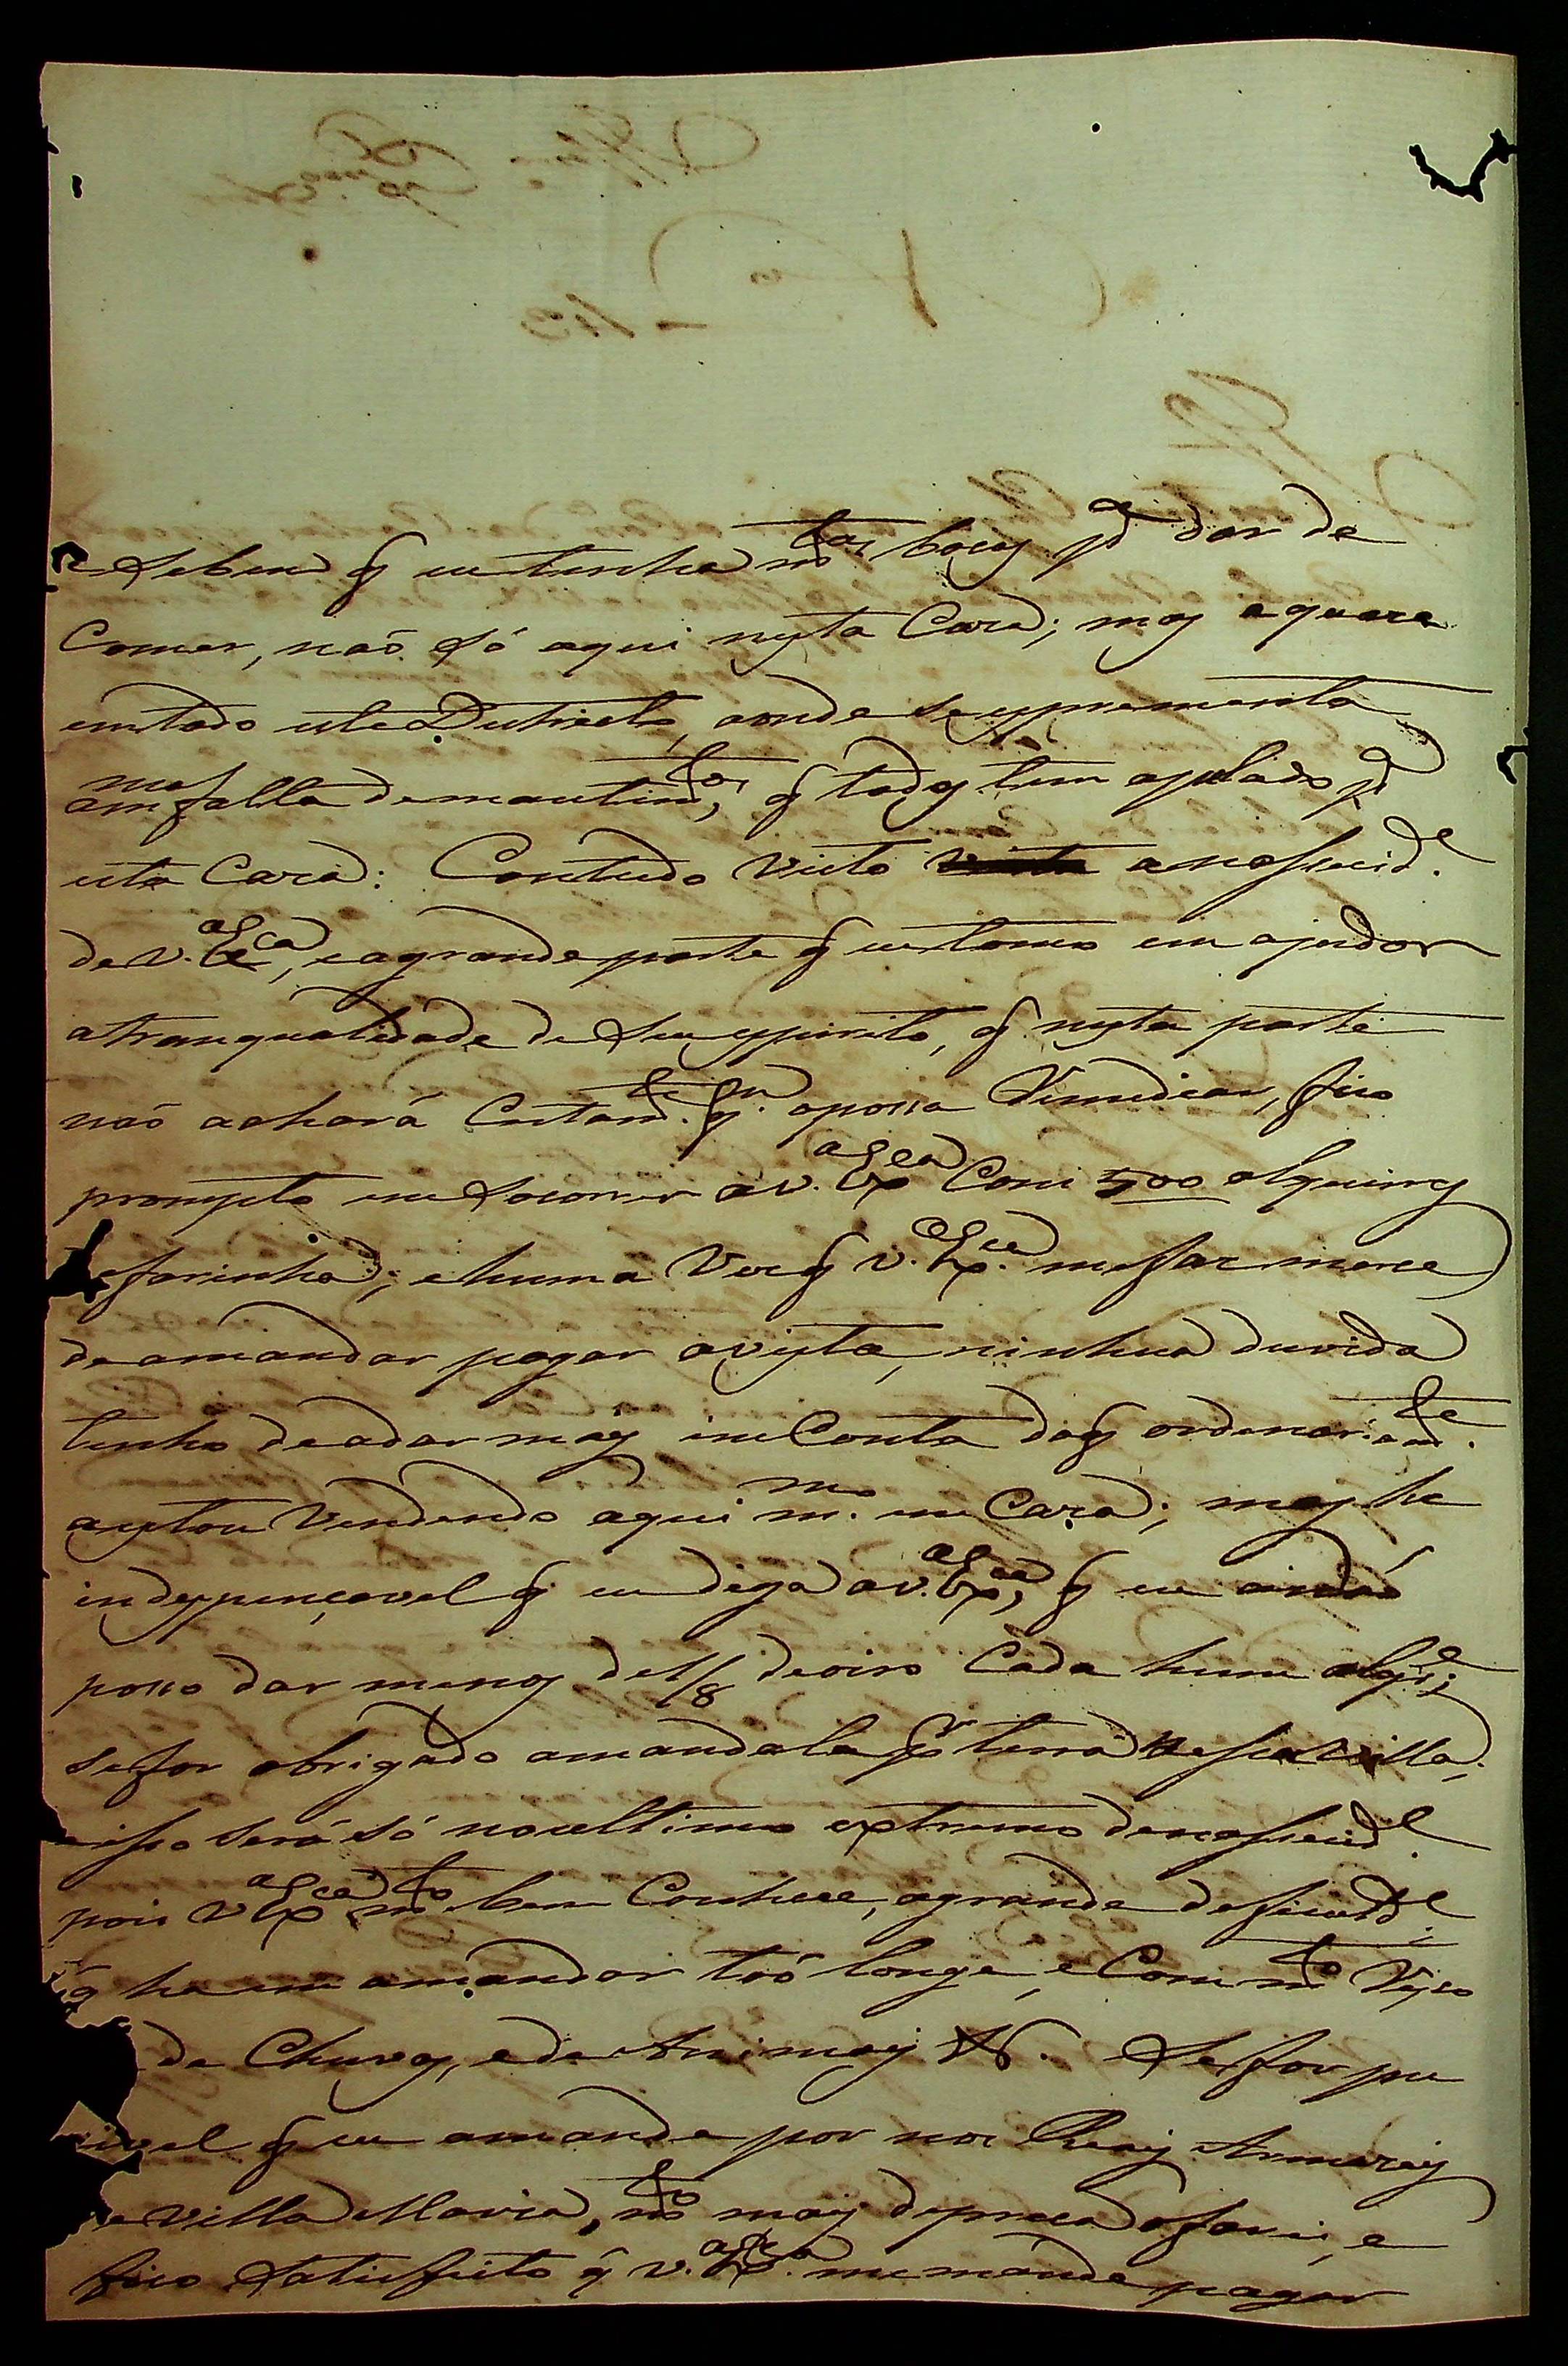 e Sebem q̃ eu tenha m.tas bocas p.a dar de
Comer, naõ só aqui nesta Caza; mas aquaze
emtodo este Destricto, aonde se esprementa
ma falta demantim.tos, q̃ todos tem apelado p.a
esta Caza: Contudo visto anessecid.e
de V. Ex.ca, eagrande parte q̃ eu tomo em ajudar
atranqualidade de Seu espirito, q̃ nesta parte
naõ achará Certam.te q.m apossa Remediar, fico
prompto em Socorrer aV. Ex.ca Com 500 alqueires
farinha; ehuma Ves q̃ V. Ex.ca mefas merce
deamandar pagar avista, ninhua duvida
tenho deadar mais em Conta doq̃ ordenariam.te
aestou Vendendo aqui m.mo em Caza; mas he
indespençavel q̃ eu diga aV. Ex.ca, q̃ eu
posso dar menos de 1/8 deoiro Cada hum alqr.e;
sefor obrigado amandala p.r terra a essa Villa;
eisso será só noultimo extremo denessecid.e
pois V Ex.ca m.to bem Conhece, agrande deficuld.e
q̃ ha em amandar taõ longe, e Com m.to Risco
de Chuvas, ede Animais &. Sefor pu
ivel q̃ eu amande por nos Reais Armazeis
e Villa Maria, m.to mais depreça ofarei, e
fico Satisfeito q̃ V. Ex.ca memande pagar